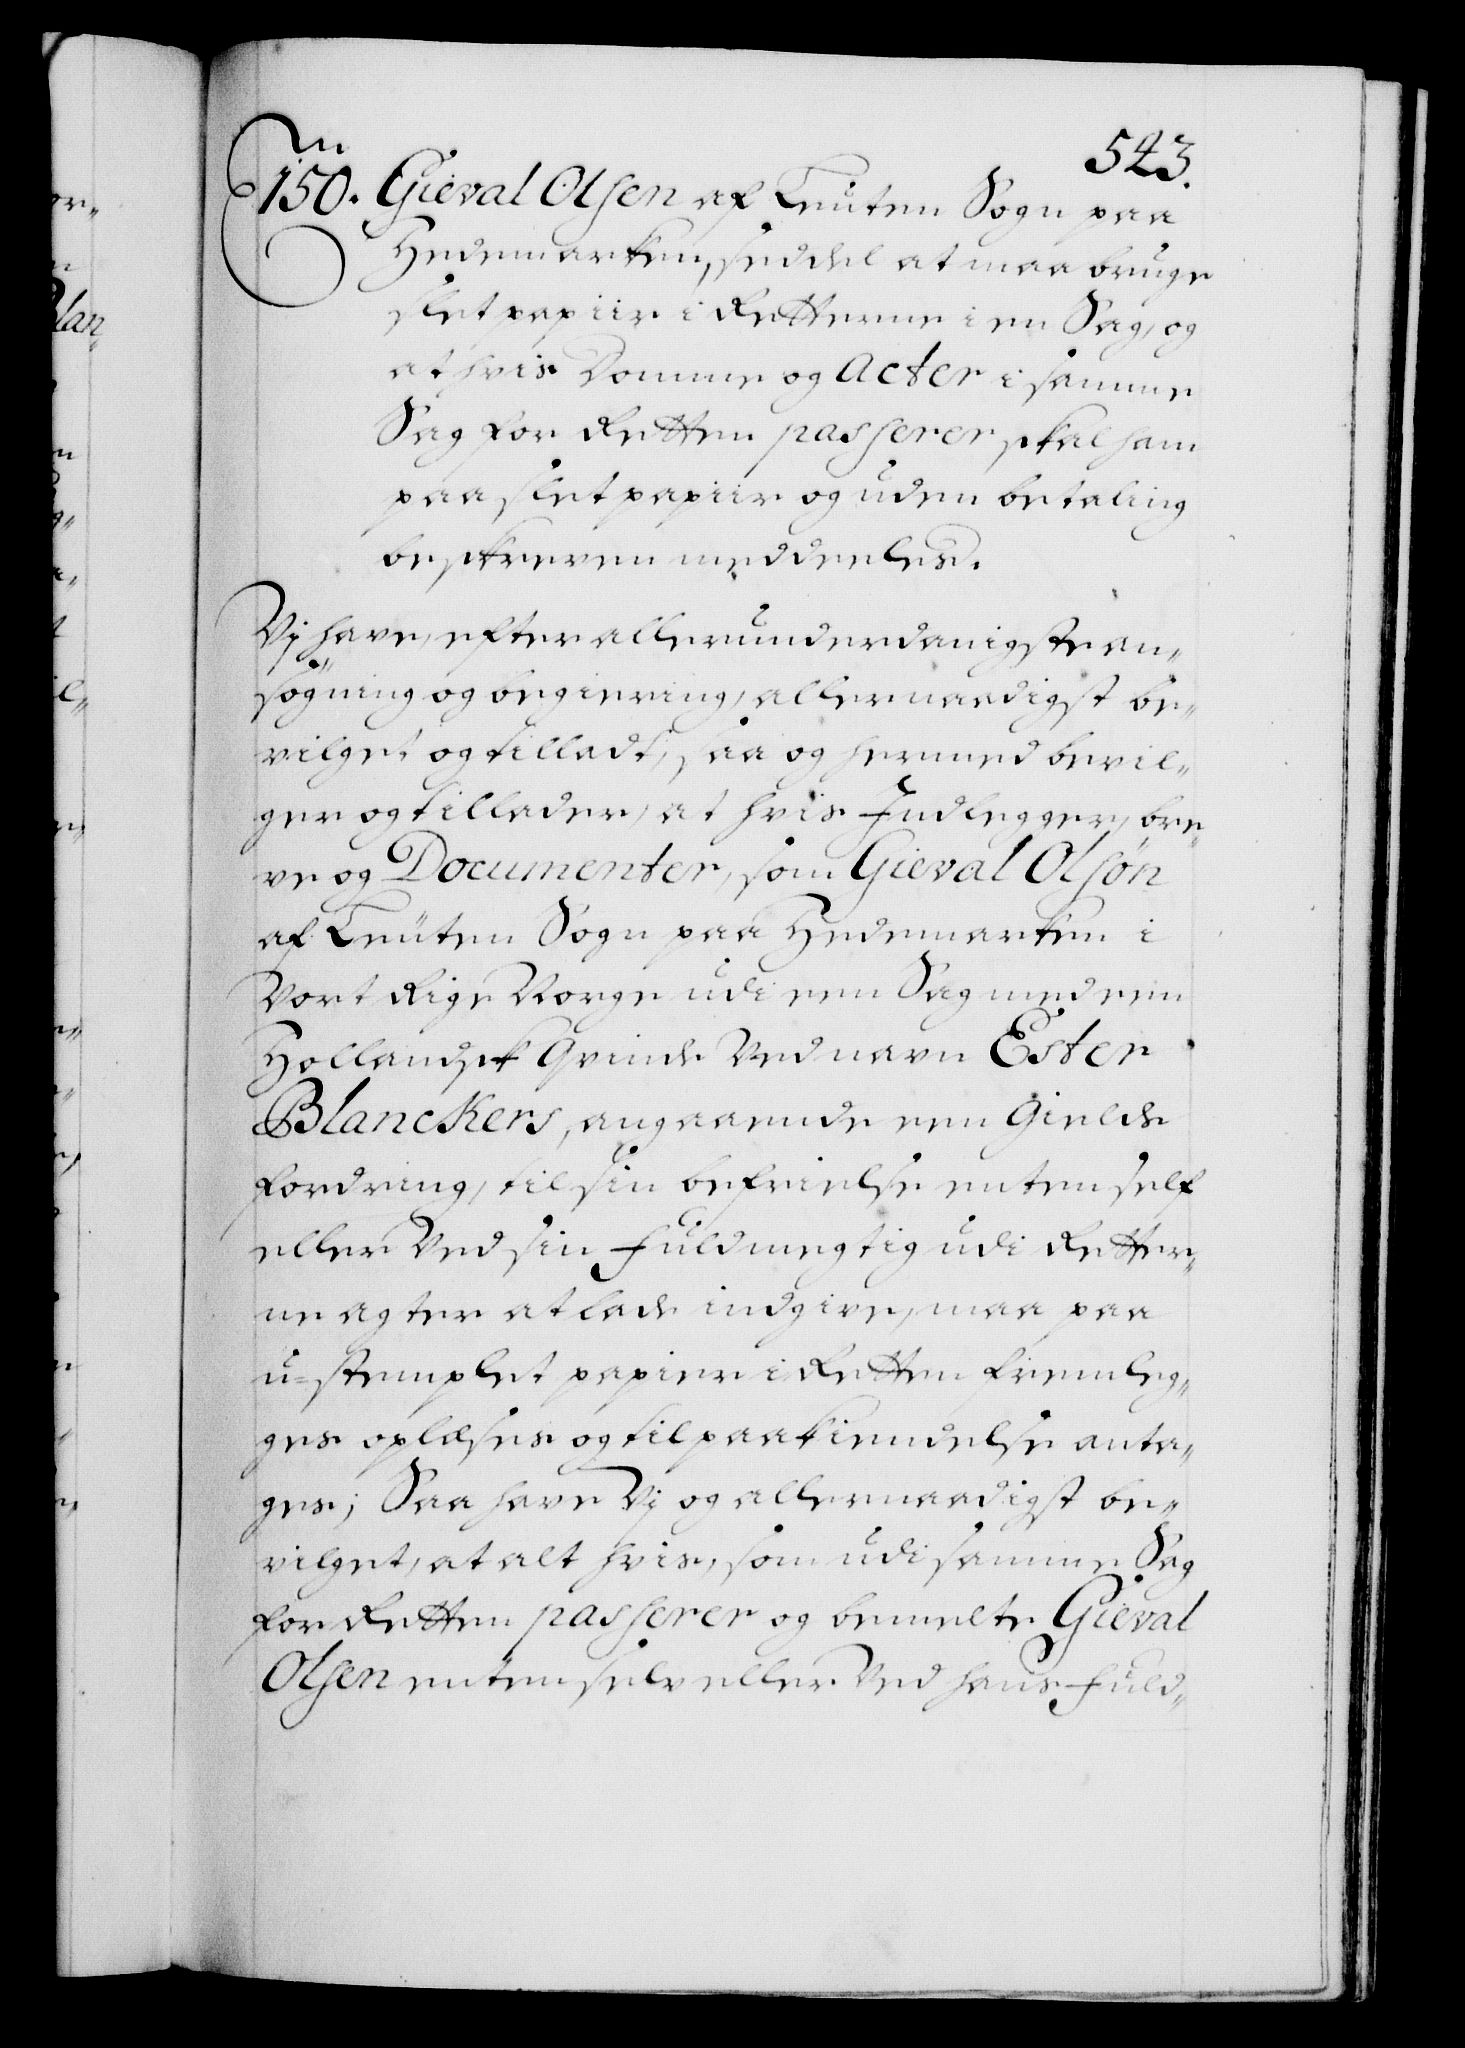 543.
150. Gieval Olsen af Leuten Sogn paa
Hedemarken, seddel at maa bruge
slet papiir i Retterne i en Sag, og
at hvis Domme og Acter i samme
Sag for Retten passerer skal ham
paa slet papiir og uden betaling
beskreven meddeeles.
Vi have, efter allerunderdanigste an„
søgning og begiering, allernaadigst be„
vilget og tilladt, saa og hermed bevil„
ger og tillader, at hvis Indlegger, bre„
ve og Documenter, som Gieval Olsøn
af Leuten Sogn paa Hedemarken i
Vort Rige Norge udi een Sag med een
Hollandsk Qvinde Ved navn Ester
Blanckers, angaaende een Gields
fordring, til sin befrielse enten self
eller Ved sin fuldmegtig udi Retter„
ne agter at lade indgive, maa paa
u=stemplet papier i Retten fremleg„
ges oplæses og til paakiendelse anta„
ges; Saa have Vi og allernaadigst be„
vilget, at alt hvis, som udi samme Sag
for Retten passerer og bemelte Gieval
Olsen enten selv eller Ved hans fuld„